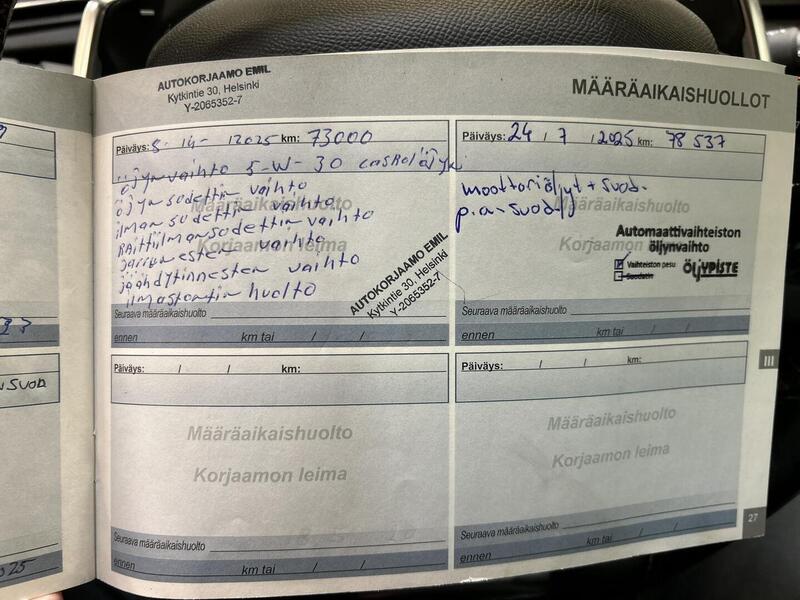 AUTOKORJAAMO EMIL
Kytkintie 30, Helsinki
Y-2065352-7
MÄÄRÄAIKAISHUOLLOT
Päiväys: 5 - 14 - 2025 km: 73000
öljyn vaihto 5-W-30 öljy
öljyn sodettin vaihto
ilman sodettin vaihto
Raittiilmansodettin vaihto
Jarrunesten vaihto
jäähdytinnesten vaihto
ilmastontin huolto
Määräaikaishuolto
Korjaamon leima
AUTOKORJAAMO EMIL
Kytkintie 30, Helsinki
Y-2065352-7
Seuraava määräaikaishuolto
ennen km tai / /
Päiväys: 24 / 7 / 2025 km: 78 537
moottoriöljyt + suod.
p.a-suod.
Määräaikaishuolto
Korjaamon leima
Automaattivaihteiston
öljynvaihto
Vaihteiston pesu
Suodatin
ÖLJYPISTE
Seuraava määräaikaishuolto
ennen km tai / /
Päiväys: / / km:
Määräaikaishuolto
Korjaamon leima
Seuraava määräaikaishuolto
ennen km tai / /
Päiväys: / / km:
Määräaikaishuolto
Korjaamon leima
Seuraava määräaikaishuolto
ennen km tai / /
III
27